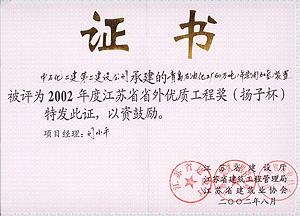 证书
中石化二建第二建设公司承建的青岛石油化250万吨/年常减压装置
被评为2002年度江苏省省外优质工程奖（扬子杯）
特发此证，以资鼓励。
项目经理：刘小平
江苏省建设厅
江苏省建筑工程管理局
江苏省建筑业协会
二〇〇二年八月